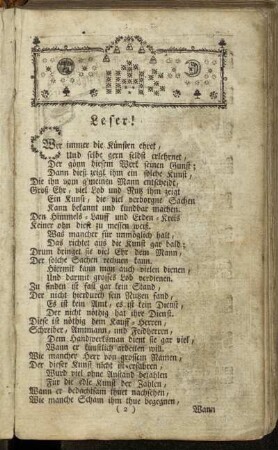 Leser!
Wer immer die Künsten ehret,
Und selbe gern selbst erlehrnet,
Der gönn diesem Werk seinen Gunst;
Dann dieß zeigt ihm ein solche Kunst,
Die ihn vom g'meinen Mann entscheidt,
Groß Ehr, viel Lob und Nutz ihm zeigt
Ein Kunst, die viel verborgne Sachen
Kann bekannt und kundbar machen.
Den Himmels-Lauff und Erden-Kreis
Keiner ohn diese zu messen weiß.
Was mancher für unmöglich halt,
Das richtet aus die Kunst gar bald;
Drum bringet sie viel Ehr dem Mann,
Der solche Sachen rechnen kann.
Hiermit kann man auch vielen dienen,
Und darmit grosses Lob verdienen.
Zu finden ist fast gar kein Stand,
Der nicht hierdurch sein Nutzen fand,
Es ist kein Amt, es ist kein Dienst,
Der nicht nöthig hat ihre Dienst.
Diese ist nöthig dem Kauff-Herren,
Schreiber, Ammann, und Feldherren,
Dem Handwerksmann dient sie gar viel,
Wann er künstlich arbeiten will.
Wie mancher Herr von grossem Namen,
Der dieser Kunst nicht
Wurd viel ohne Anstand bezahlen
Für die edle Kunst der Zahlen,
Wann er bedachtsam thuet nachsehen,
Wie manche Scham ihm thue begegnen,
(2) Wann